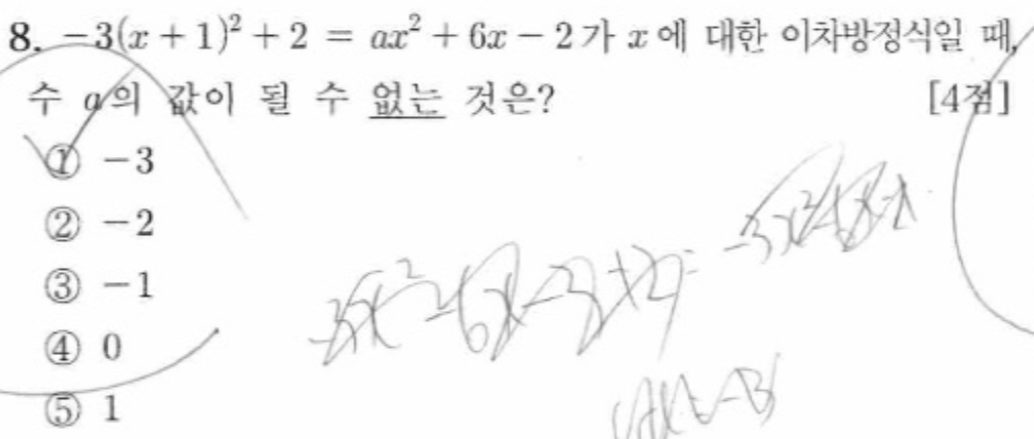 8. -3(x+1)² + 2 = ax² + 6x - 2가 x에 대한 이차방정식일 때,
수 a의 값이 될 수 없는 것은? [4점]
① -3
② -2
-3x²-6x-3+2=
③ -1
④ 0
⑤ 1